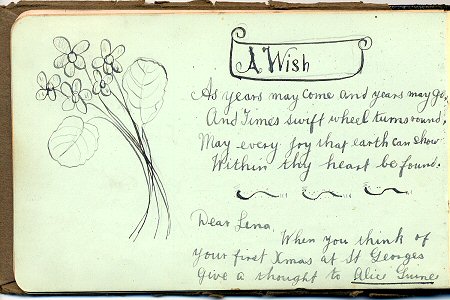 A Wish
As years may come and years may go,
And Times swift wheel turns round,
May every joy that earth can show
Within thy heart be found.
Dear Lena,
When you think of
your first Xmas at St Georges
Give a thought to Alice Guine